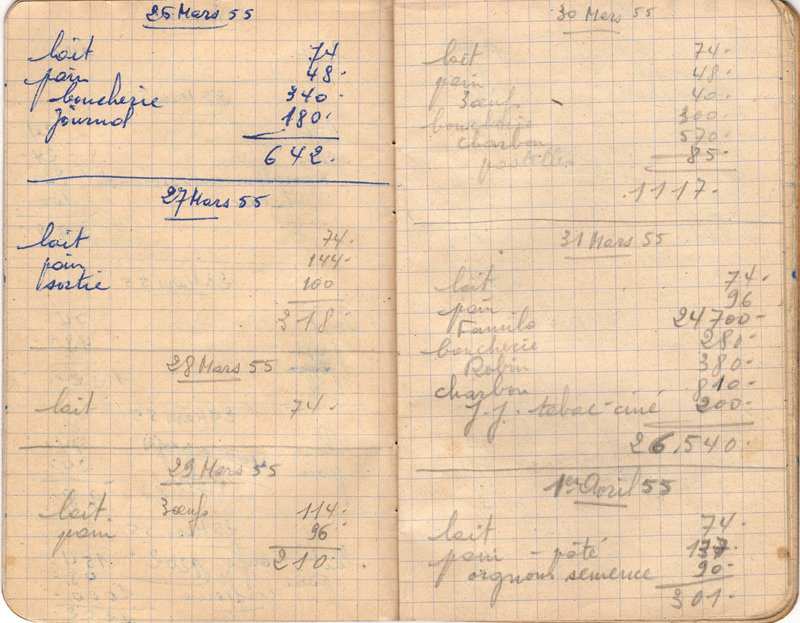 26 Mars 55
lait 74
pain 48.
boucherie 340.
journal 180.
642.
27 Mars 55
lait 74.
pain 144.
sortie 100
318.
28 Mars 55
lait 74.
29 Mars 55
lait. 3 œufs 114.
pain 96.
210.
30 Mars 55
lait 74.
pain 48.
3 œufs 40.
boucherie 300.
charbon 570.
pastilles 85.
1117.
31 Mars 55
lait 74.
pain 96
Familo 24700-
boucherie 280-
Robin 380-
charbon 810-
J.J. tabac-ciné 200-
26.540.
1er Avril 55
lait 74.
pain - pâté 137-
oignons semence 90-
301.